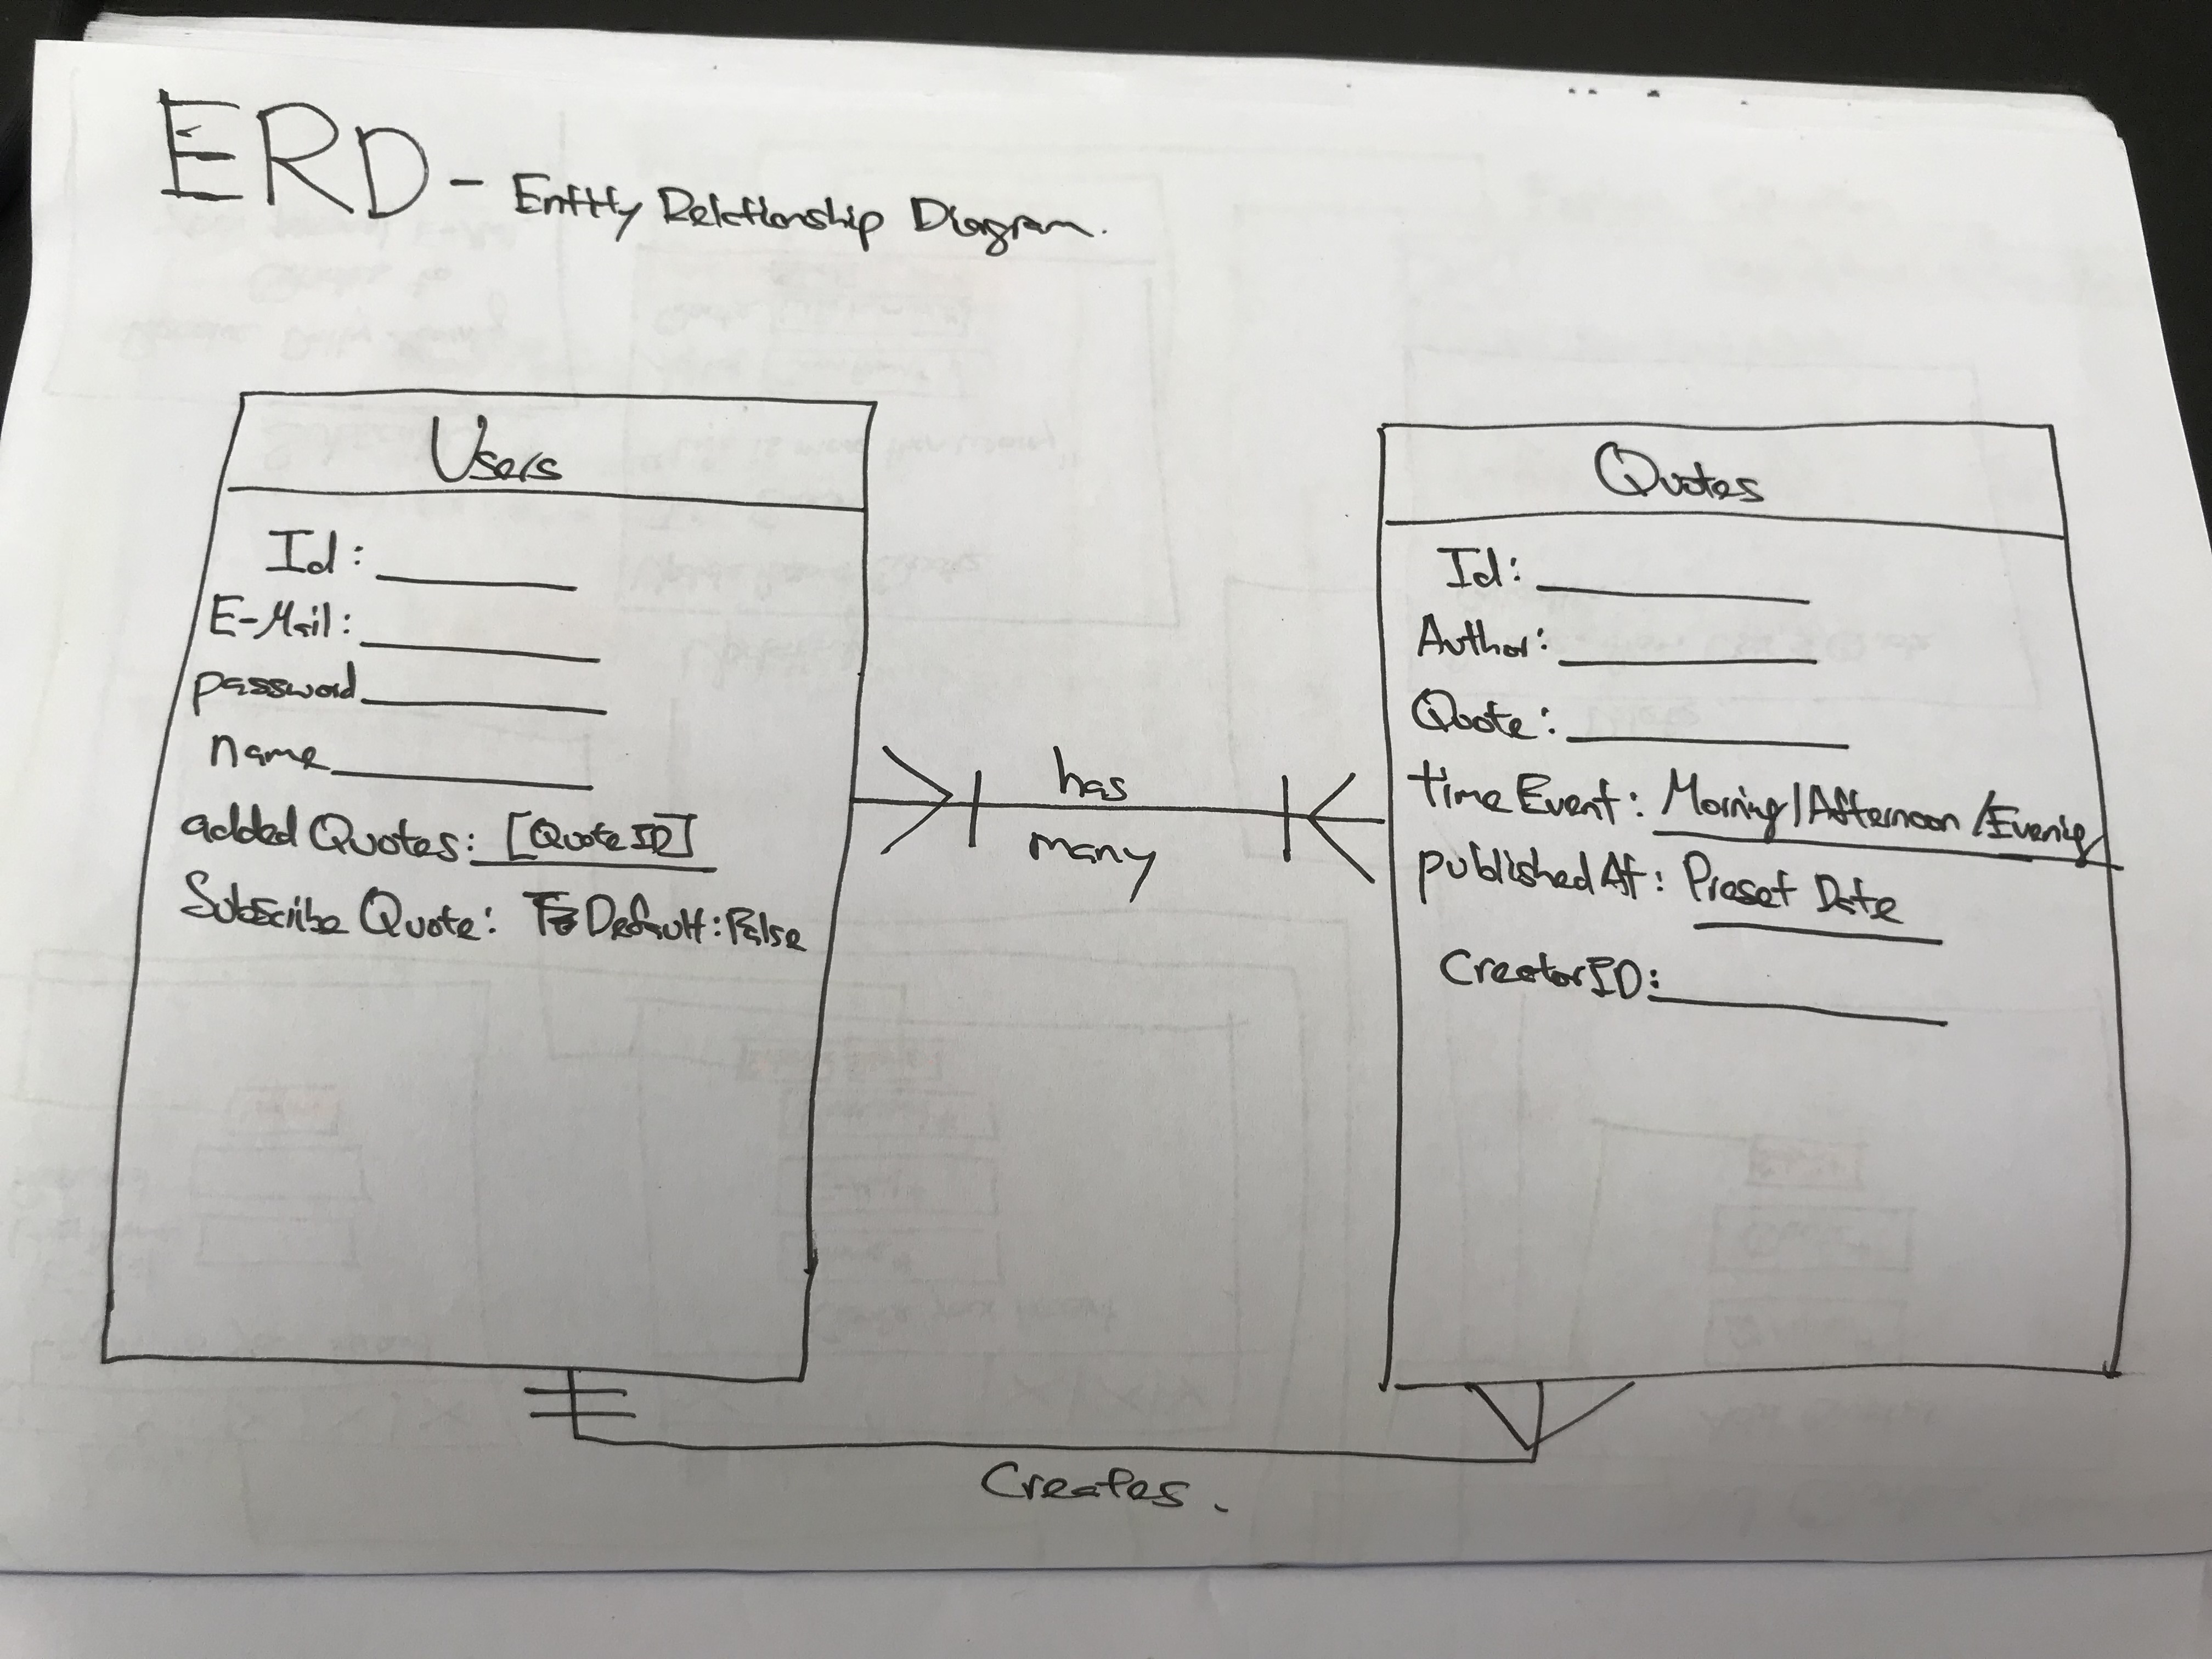 ERD - Entity Relationship Diagram.
Users
Id:
E-Mail:
Password
name
added Quotes: [Quote ID]
Subscribe Quote: Default: False
has
many
Creates.
Quotes
Id:
Author:
Quote:
time Event: Morning/Afternoon/Evening
published At: Preset Date
Creator ID: